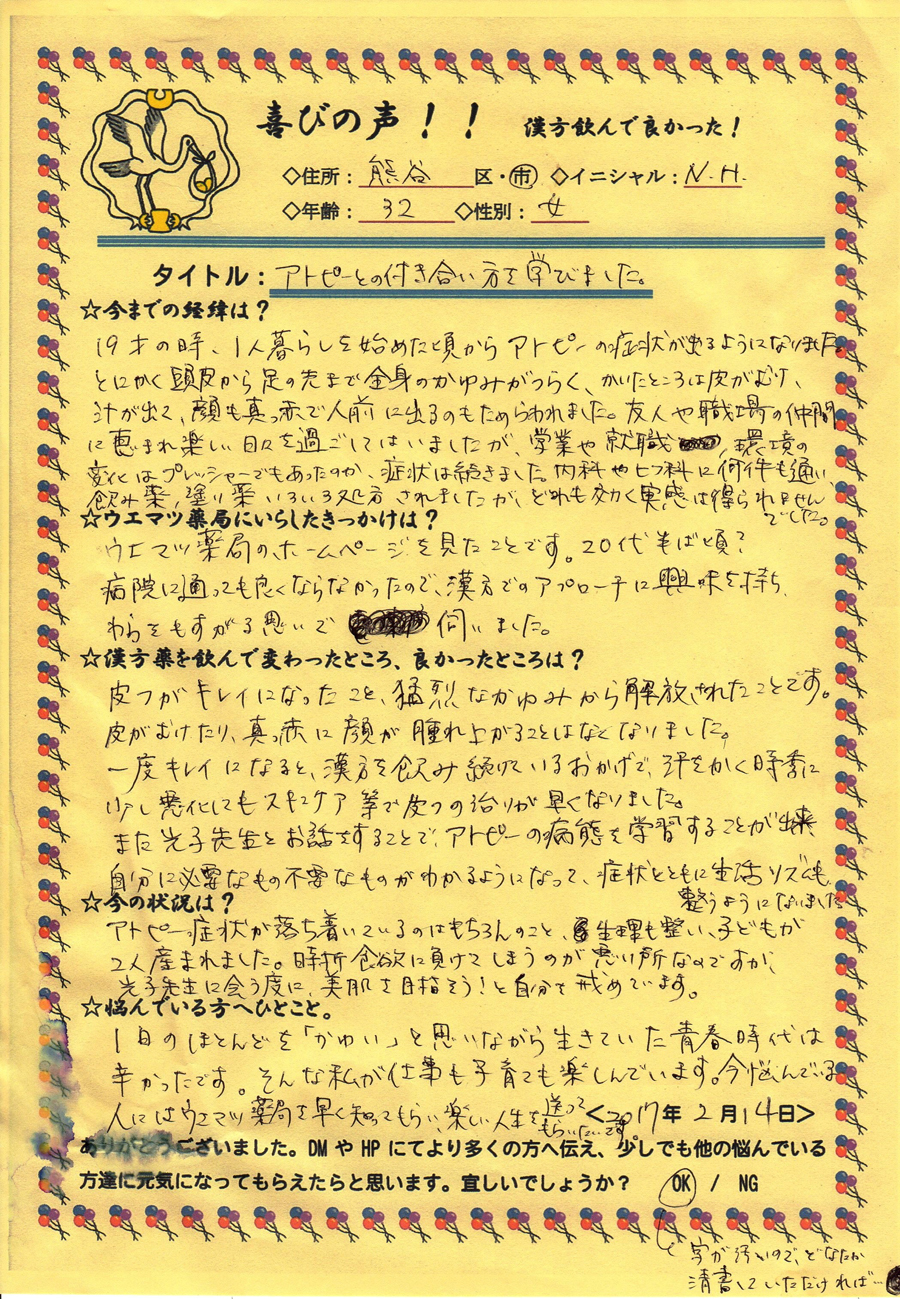 喜びの声!! 漢方飲んで良かった!
◇住所:熊谷 区・市 ◇イニシャル:N.H.
◇年齢:32 ◇性別:女
タイトル:アトピーとの付き合い方を学びました。
☆今までの経緯は?
19才の時、1人暮らしを始めた頃からアトピーの症状が出るようになりました
とにかく頭皮から足の先まで全身のかゆみがつらく、かいたところは皮がむけ、
汁が出て、顔も真っ赤で人前に出るのもためらわれました。友人や職場の仲間
に恵まれ楽しい日々を過ごしてはいましたが学業や就職、環境の
変化はプレッシャーでもあったのか、症状は続きました。内科やヒフ科に何件も通い、
飲み薬、塗り薬いろいろ処方されましたが、どれも効く実感は得られません
でした。
☆ウエマツ薬局にいらしたきっかけは?
ウエマツ薬局のホームページを見たことです。20代半ば頃?
病院に通っても良くならなかったので、漢方でのアプローチに興味を持ち、
わらをもすがる思いで 伺いました。
☆漢方薬を飲んで変わったところ、良かったところは?
皮フがキレイになったこと、猛烈なかゆみから解放されたことです。
皮がむけたり、真っ赤に顔が腫れ上がることはなくなりました。
一度キレイになると、漢方を飲み続けているおかげで、汗をかく時季に
少し悪化してもスキンケア等で皮フの治りが早くなりました。
また光子先生とお話をすることで、アトピーの病態を学習することが出来
自分に必要なもの不要なものがわかるようになって、症状とともに生活リズムも
整うようになりました
☆今の状況は?
アトピー症状が落ち着いているのはもちろんのこと、生理も整い、子どもが
2人産まれました。時折食欲に負けてしまうのが悪い所なのですが、
光子先生に会う度に、美肌を目指そう!と自分を戒めています。
☆悩んでいる方へひとこと。
1日のほとんどを「かゆい」と思いながら生きていた青春時代は
辛かったです。そんな私が仕事も子育ても楽しんでいます。今悩んでいる
人にはウエマツ薬局を早く知ってもらい、楽しい人生を送って
もらいたいです
<2017年 2月14日>
ありがとうございました。DMやHPにてより多くの方へ伝え、少しでも他の悩んでいる
方達に元気になってもらえたらと思います。宜しいでしょうか? OK / NG
字が汚いので、どなたか
清書していただければ…